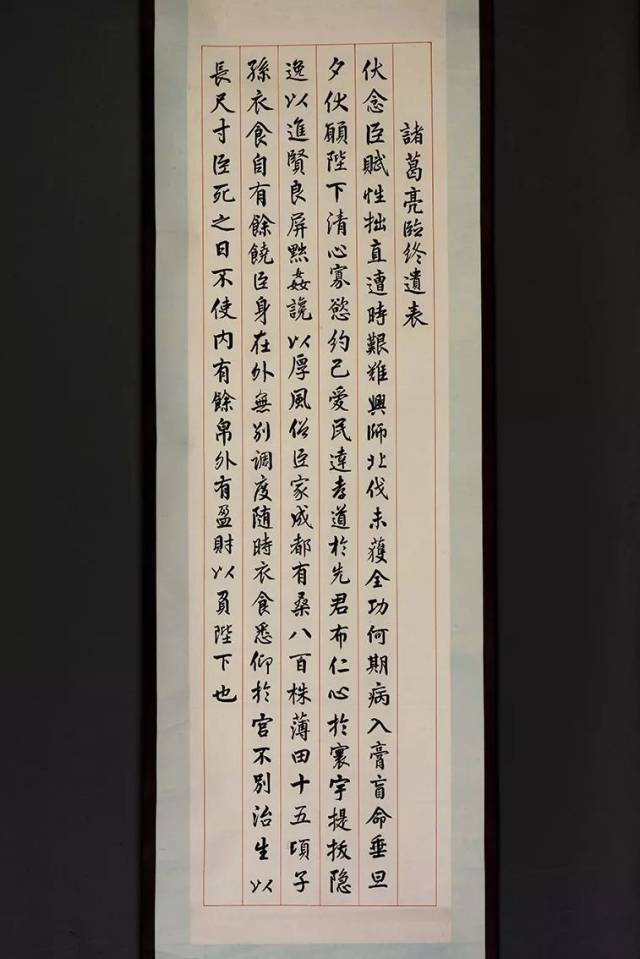 諸葛亮臨終遺表
伏念臣賦性拙直遭時艱難興師北伐未獲全功何期病入膏盲命垂旦
夕伙願陛下清心寡慾約己愛民達孝道於先君布仁心於寰宇提拔隐
逸以進賢良屏黜姦讒以厚風俗臣家成都有桑八百株薄田十五頃子
孫衣食自有餘饒臣身在外無別調度随時衣食悉仰於官不別治生以
長尺寸臣死之日不使内有餘帛外有盈財以負陛下也